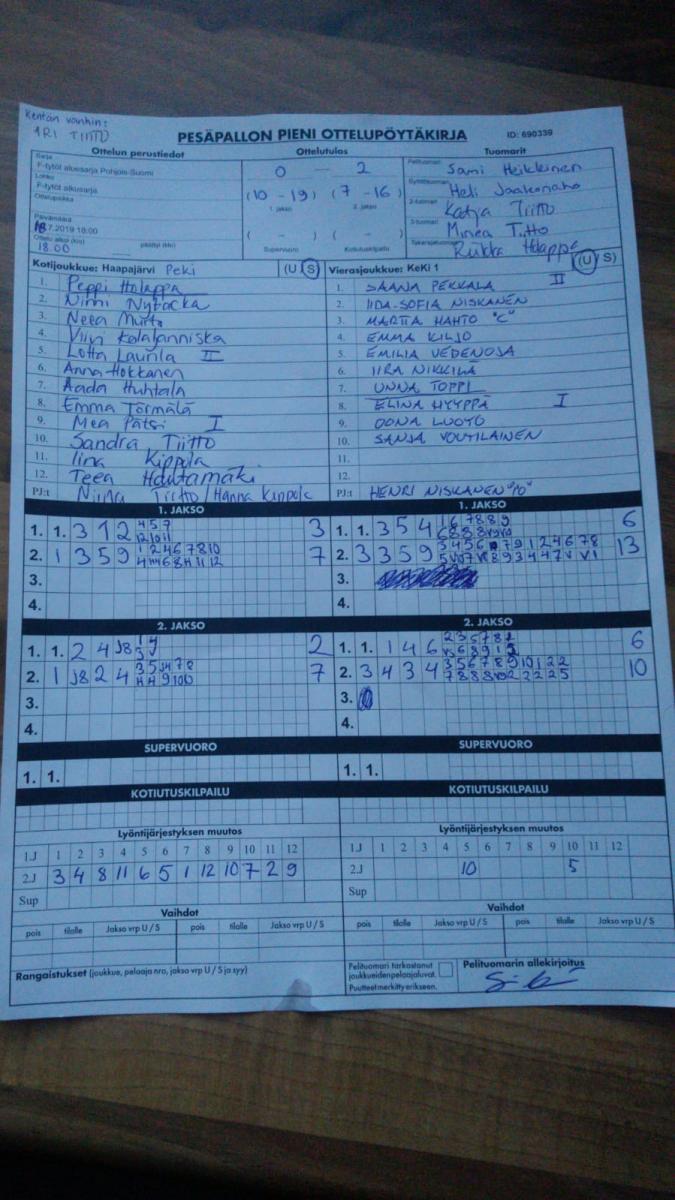 Kentän vanhin:
ARI TIITTO
PESÄPALLON PIENI OTTELUPÖYTÄKIRJA
ID: 690339
Ottelun perustiedot
Ottelutulos
Tuomarit
Sarja
F-tytöt aluesarja Pohjois-Suomi
Lohko
F-tytöt alkusarja
Ottelupaikka
Päivämäärä
18.7.2019 18:00
Ottelu alkoi (klo) päättyi (klo)
18.00
0 — 2
(10 - 19) (7 - 16)
1. jakso 2. jakso
( - ) ( - )
Supervuoro Kotiutuskilpailu
Pelituomari Sami Heikkinen
Syöttötuomari Heli Jaakonaho
2-tuomari Katja Tiitto
3-tuomari Minea Tiitto
Takarajatuomari Riikka Holappa
Kotijoukkue: Haapajärvi Peki (U S)
1. Peppi Holappa
2. Ninni
3. Neea
4. Viivi Kalajanniska
5. Lotta Laurila II
6. Anna Hokkanen
7. Aada Huhtala
8. Emma Törmälä
9. Mea Pätsi I
10. Sandra Tiitto
11. Iina Kippola
12. Teea Hautamäki
PJ:t Niina Tiitto / Hanna Kippola
Vierasjoukkue: KeKi 1 (U S)
1. SAANA PEKKALA II
2. IIDA-SOFIA NISKANEN
3. MARTTA HAHTO "C"
4. EMMA KILJO
5. EMILIA VEDENOJA
6. IIRA NIKKILÄ
7. UNNA TOPPI
8. ELINA HYYPPÄ I
9. OONA LUOTO
10. SANJA VOUTILAINEN
11.
12.
PJ:t HENRI NISKANEN "PO"
1. JAKSO
1. 1. 3 1 2 4 5 7 3
2. 1 3 5 9 1 2 4 6 7 8 10 7
3.
4.
1. JAKSO
1. 1. 3 5 4 6
2. 3 3 5 9 13
3.
4.
2. JAKSO
1. 1. 2 4 2
2. 1 2 4 7
3.
4.
2. JAKSO
1. 1. 1 4 6 2 3 5 7 8 6
2. 3 4 3 4 3 5 6 7 8 9 10 1 2 2 10
3.
4.
SUPERVUORO
1. 1.
SUPERVUORO
1. 1.
KOTIUTUSKILPAILU
KOTIUTUSKILPAILU
Lyöntijärjestyksen muutos
1.J 1 2 3 4 5 6 7 8 9 10 11 12
2.J 3 4 8 11 6 5 1 12 10 7 2 9
Sup
Lyöntijärjestyksen muutos
1.J 1 2 3 4 5 6 7 8 9 10 11 12
2.J 10 5
Sup
Vaihdot
pois tilalle Jakso vrp U / S pois tilalle Jakso vrp U / S
Vaihdot
pois tilalle Jakso vrp U / S pois tilalle Jakso vrp U / S
Rangaistukset (joukkue, pelaaja nro, jakso vrp U / S ja syy)
Pelituomari tarkastanut
joukkueiden pelaajaluvat.
Puutteet merkitty erikseen.
Pelituomarin allekirjoitus